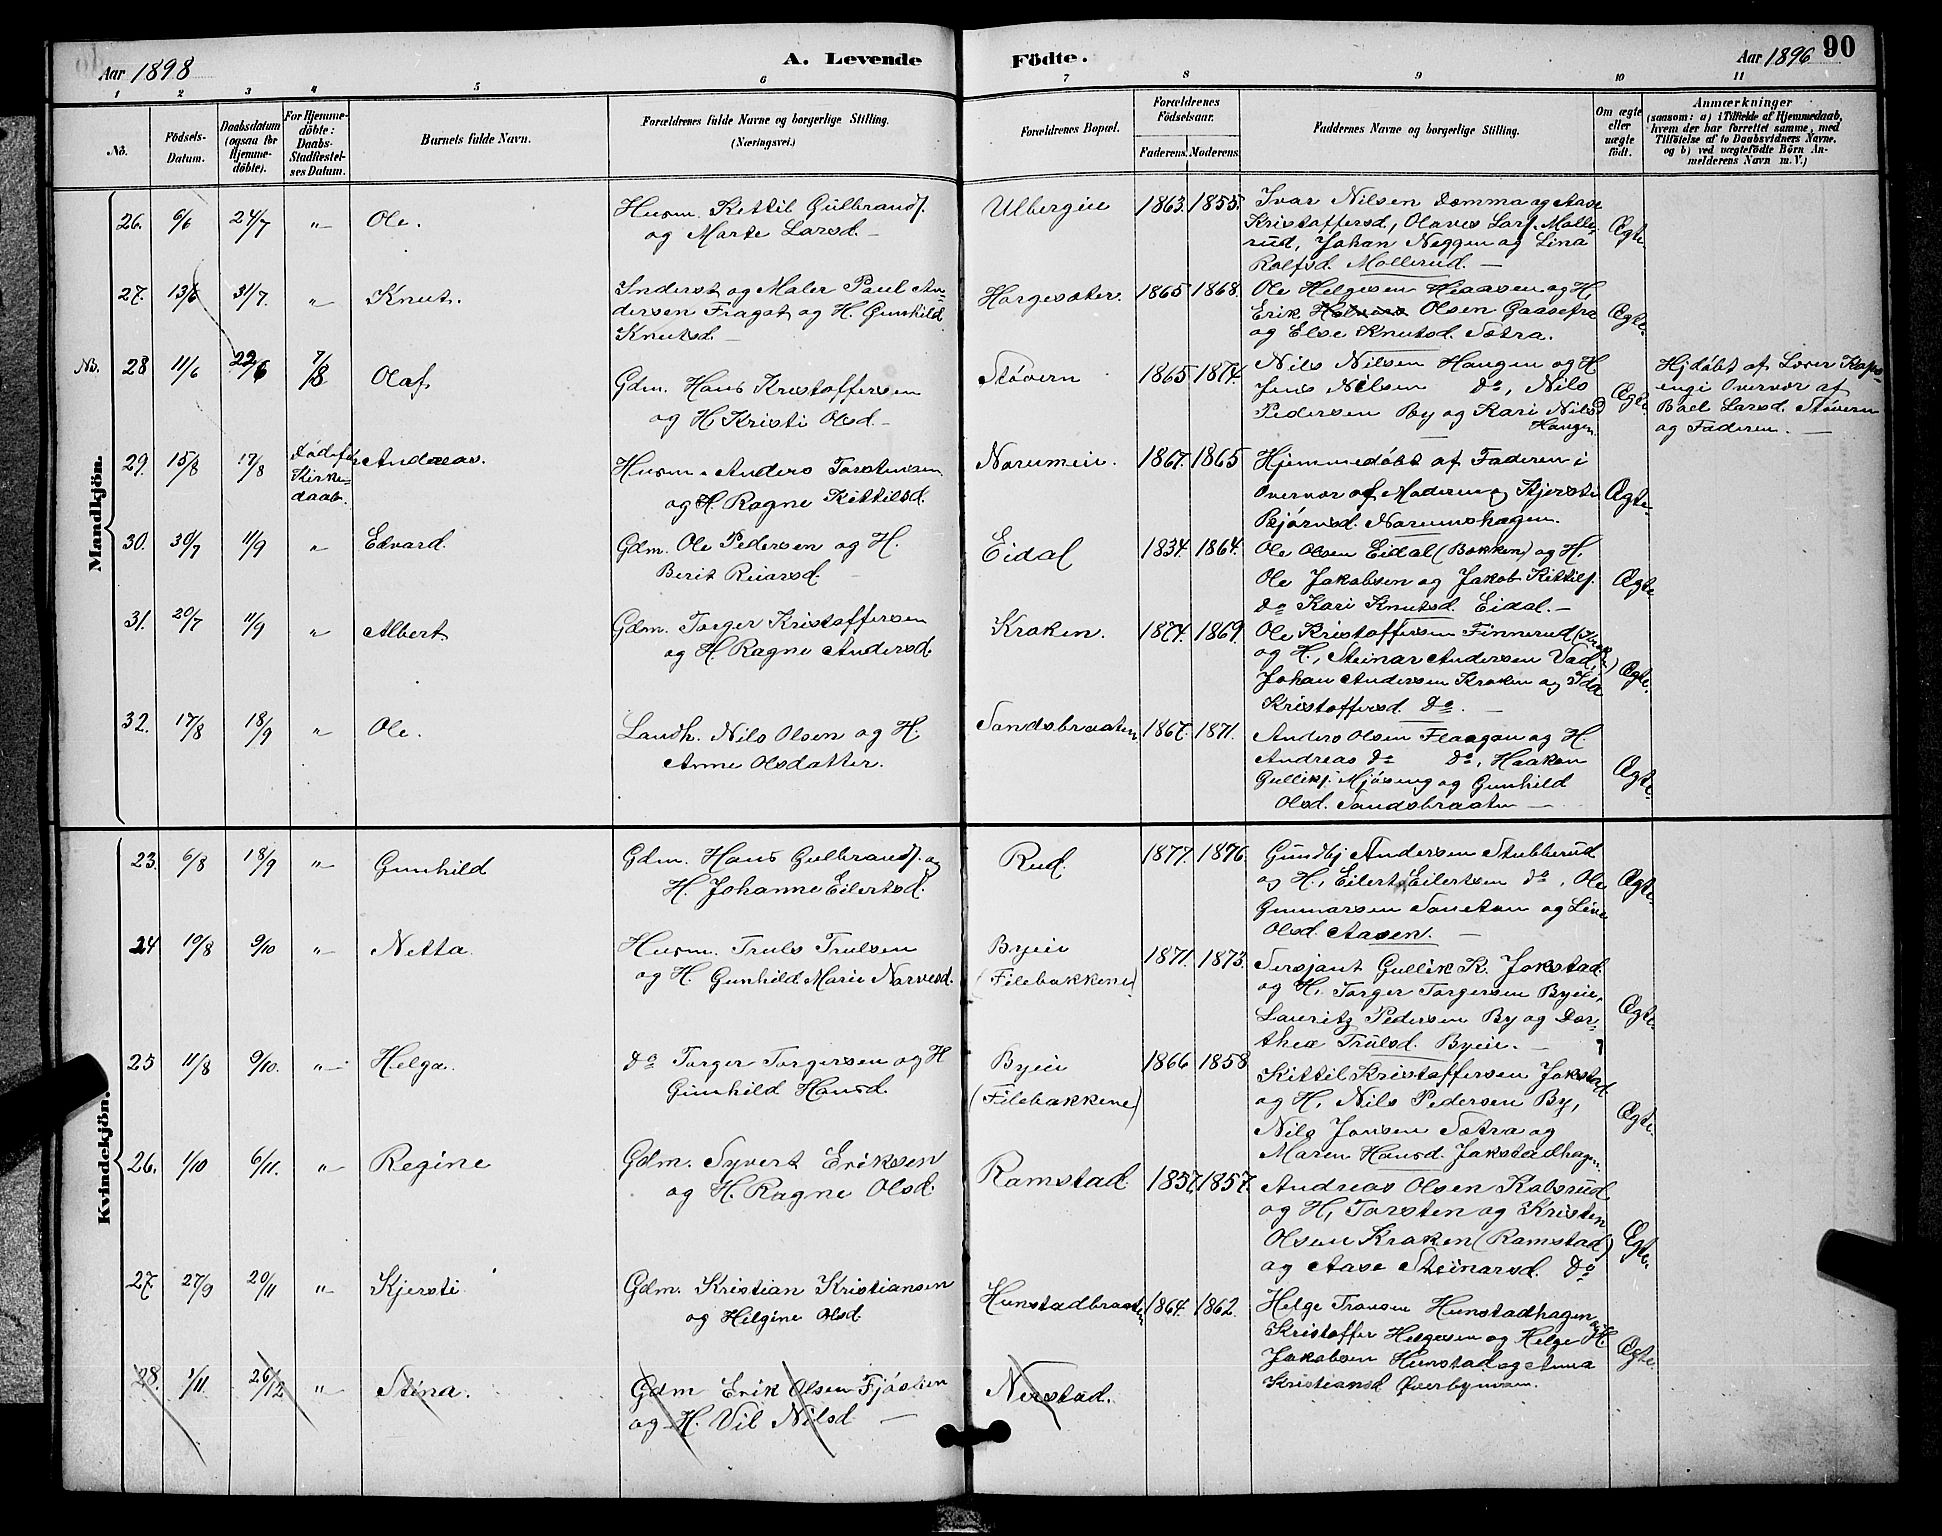 Aar 1898
A. Levende
Födte.
Aar 1896
90
1 2 3 4 5 6 7 8 9 10 11
No.
Födsels-Datum.
Daabsdatum (ogsaa for Hjemme-döbte).
For Hjemme-döbte: Daabs-Stadfæstel-ses Datum.
Barnets fulde Navn.
Forældrenes fulde Navne og borgerlige Stilling.
(Næringsvei.)
Forældrenes Bopæl.
Forældrenes Födselsaar.
Faderens. Moderens.
Faddernes Navne og borgerlige Stilling.
Om ægte eller uægte födt.
Anmærkninger
(saasom: a) i Tilfælde af Hjemmedaab,
hvem der har forrettet samme, med
Tilföielse af to Daabsvidners Navne,
og b) ved uægtefödte Börn An-
melderens Navn m. V.)
Mandkjön.
26. 6/6 24/7 " Ole.
Husm. Kettil Gulbrandf.
og Marte Larsd. –
Ulbergeie 1863. 1855.
Ivar Nilsen Domma og Aase
Kristoffersd, Olaves Larf. Molle-
rud, Johan Neggen og Lina
Rolfsd. Mollerud. –
Ægte.
27. 13/6 31/7. " Knut.
Inderst og Maler Paul An-
dersen Fragot og H. Gunhild
Knutsd. –
Horgesæter. 1865 1868.
Ole Helgesen Heaasen og H,
Erik Olsen Gaasefra
og Else Knutsd. Sætra.
Ægte.
NB. 28 11/6 22/6 7/8 Olaf.
Gdm. Hans Kristoffersen
og H. Kristi Olsd. –
Støvern 1865 1874.
Nils Nilsen Haugen og H
Jens Nilsen Do, Nils
Pedersen By og Kari Nilsd
Haugen.
Ægte.
Hjdøbt af Lover
engi Overvær af
Larsd. Støvern
og Faderen. –
29. 15/8 17/8 Død før Kirke-daab. Andreas.
Husm. Anders Torstensen
og H. Ragne Kittilsd.
Narumeie. 1867. 1865
Hjemmedøbt af Faderen i
Overvær af Moderen og Kjersti
Bjørnsd. Narumshagen.
Ægte.
30. 30/7 11/9 " Edvard.
Gdm. Ole Pedersen og H.
Berit Reiarsd. –
Eidal 1834. 1864.
Ole Olsen Eidal (Bakken) og H,
Ole Jakobsen og Jakob Kittilf.
Do Kari Knutsd. Eidal. –
Ægte.
31. 20/7 11/9 " Albert
Gdm. Torger Kristoffersen
og H. Ragne Andersd.
Kraken. 1874. 1869.
Ole Kristoffersen Finnerud
og H., Steinar Andersen Vad,
Johan Andersen Kraken og Ida
Kristoffersd. Do. –
Ægte.
32. 17/8 18/9 " Ole.
Landh. Nils Olsen og H.
Anne Olsdatter.
Sandsbraaten 1867. 1871.
Anders Olsen Flaagan og H.
Andreas Do Do, Haakon
Gullikf. Mjøseng og Gunhild
Olsd. Sandsbraaten –
Ægte.
Kvindekjön.
23. 6/8 18/9 " Gunhild
Gdm. Hans Gulbrandf. og
H. Johanne Eilertsd.
Rud. 1877. 1876.
Gundbj Andersen Stubberud
og H., Eilert Eilertsen Do, Ole
Gunnarsen og Live
Olsd. Aasen. –
Ægte.
24 10/8 9/10 " Netta.
Husm. Truls Trulsen
og H. Gunhild Marie Narvesd.
Byeie
(Filebakkene) 1871. 1873.
Sersjant Gullik K. Jokstad
og H, Torger Torgersen Byeie,
Lauritz Pedersen By og Dor-
thea Trulsd. Byeie. –
Ægte.
25 11/8 9/10. " Helga.
Do Torger Torgersen og H
Gunhild Hansd.
Byeie
(Filebakkene) 1866 1858
Kittil Kristoffersen Jokstad
og H, Nils Pedersen By,
Nils Jonsen Sætra og
Maren Hansd. Jokstadhagen.
Ægte.
26. 1/10 6/11. " Regine
Gdm. Syvert Eriksen
og H. Ragne Olsd.
Ramstad. 1857. 1857.
Andreas Olsen Kolsrud
og H, Torsten og Kristen
Olsen Kraken (Ramstad)
og Aase Steinarsd. Do
Ægte.
27. 27/9 20/11 " Kjersti
Gdm. Kristian Kristiansen
og Helgine Olsd
Hunstadbraaten 1864. 1862.
Helge Transen Hunstadhagen
Kristoffer Helgesen og Helge
Jakobsen Hunstad og Anna
Kristiansd Overbymoen.
Ægte.
28. 1/11. 26/12 " Stina.
Gdm Erik Olsen Fjøslien
og H. Vil Nilsd –
Nerstad.